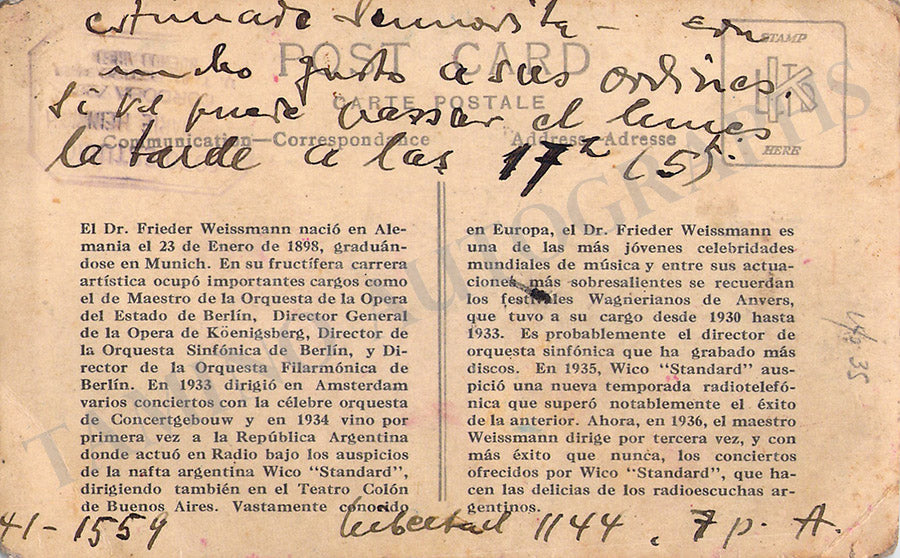 estimada Sennorita – con
mucho gusto a sus ordines.
Si Vd puede passar el lunes
la tarde a las 17h (5).
POST CARD
CARTE POSTALE
Communication—Correspondance
Address—Adresse
STAMP
HERE
El Dr. Frieder Weissmann nació en Ale-
mania el 23 de Enero de 1898, graduán-
dose en Munich. En su fructífera carrera
artística ocupó importantes cargos como
el de Maestro de la Orquesta de la Opera
del Estado de Berlín, Director General
de la Opera de Köenigsberg, Director de
la Orquesta Sinfónica de Berlín, y Di-
rector de la Orquesta Filarmónica de
Berlín. En 1933 dirigió en Amsterdam
varios conciertos con la célebre orquesta
de Concertgebouw y en 1934 vino por
primera vez a la República Argentina
donde actuó en Radio bajo los auspicios
de la nafta argentina Wico "Standard",
dirigiendo también en el Teatro Colón
de Buenos Aires. Vastamente conocido
en Europa, el Dr. Frieder Weissmann es
una de las más jóvenes celebridades
mundiales de música y entre sus actua-
ciones más sobresalientes se recuerdan
los festivales Wagnerianos de Anvers,
que tuvo a su cargo desde 1930 hasta
1933. Es probablemente el director de
orquesta sinfónica que ha grabado más
discos. En 1935, Wico "Standard" aus-
pició una nueva temporada radiotelefó-
nica que superó notablemente el éxito
de la anterior. Ahora, en 1936, el maestro
Weissmann dirige por tercera vez, y con
más éxito que nunca, los conciertos
ofrecidos por Wico "Standard", que ha-
cen las delicias de los radioescuchas ar-
gentinos.
41-1559
Libertad 1144, 7 p. A.
TAMINO AUTOGRAPHS